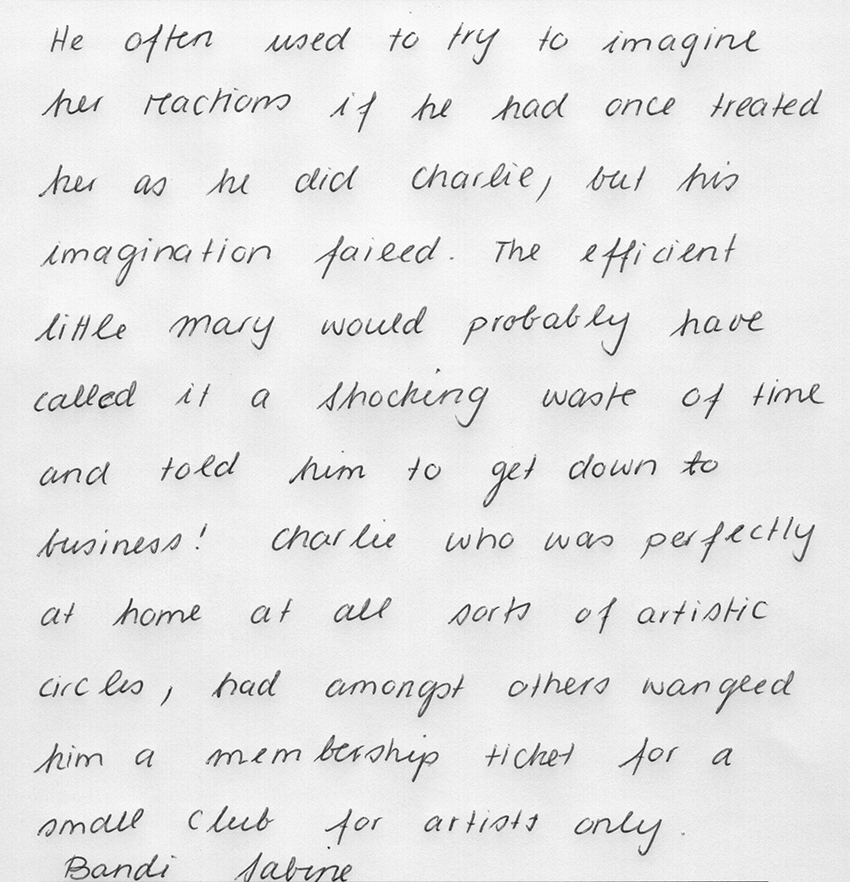 He often used to try to imagine
her reactions if he had once treated
her as he did Charlie, but his
imagination failed. The efficient
little Mary would probably have
called it a shocking waste of time
and told him to get down to
business! Charlie who was perfectly
at home at all sorts of artistic
circles, had amongst others wangled
him a membership ticket for a
small Club for artists only.
Bandi Sabine